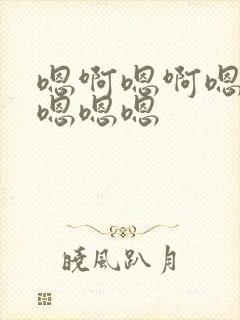 嗯啊嗯啊嗯
嗯嗯嗯
晓风趴月